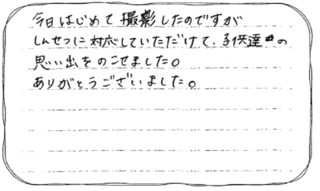 今日はじめて撮影したのですが
しんせつに対応していただけて、子供達の
思い出をのこせました。
ありがとうございました。